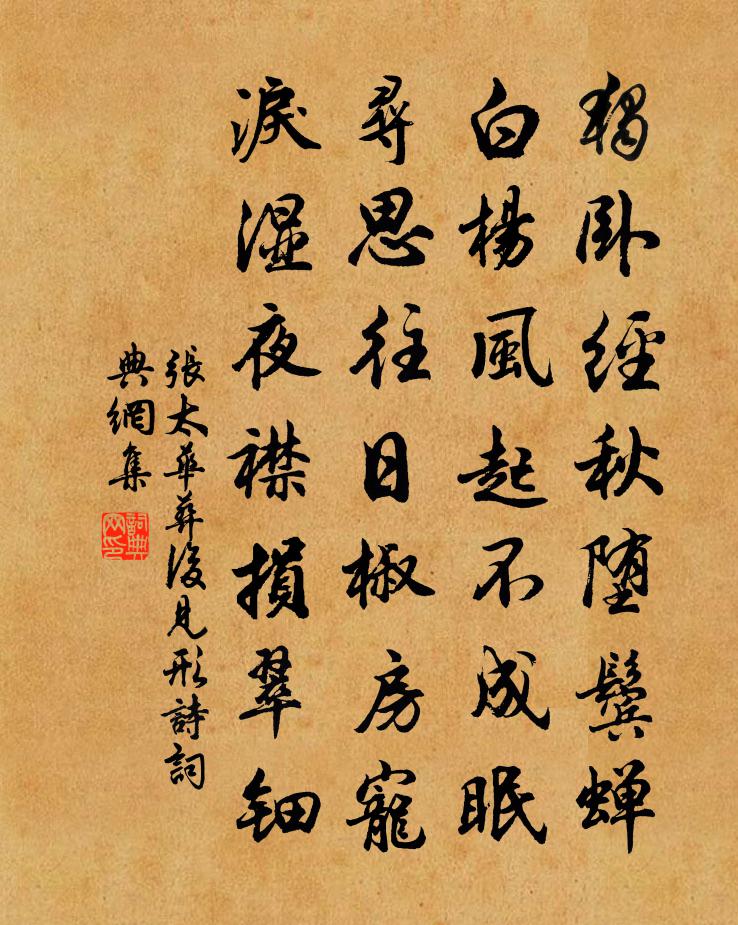 獨卧經秋墮鬢蟬
白楊風起不成眠
尋思往日椒房寵
淚濕夜襟損翠鈿
張太華葬後見形詩詞
典網集
詞典网印